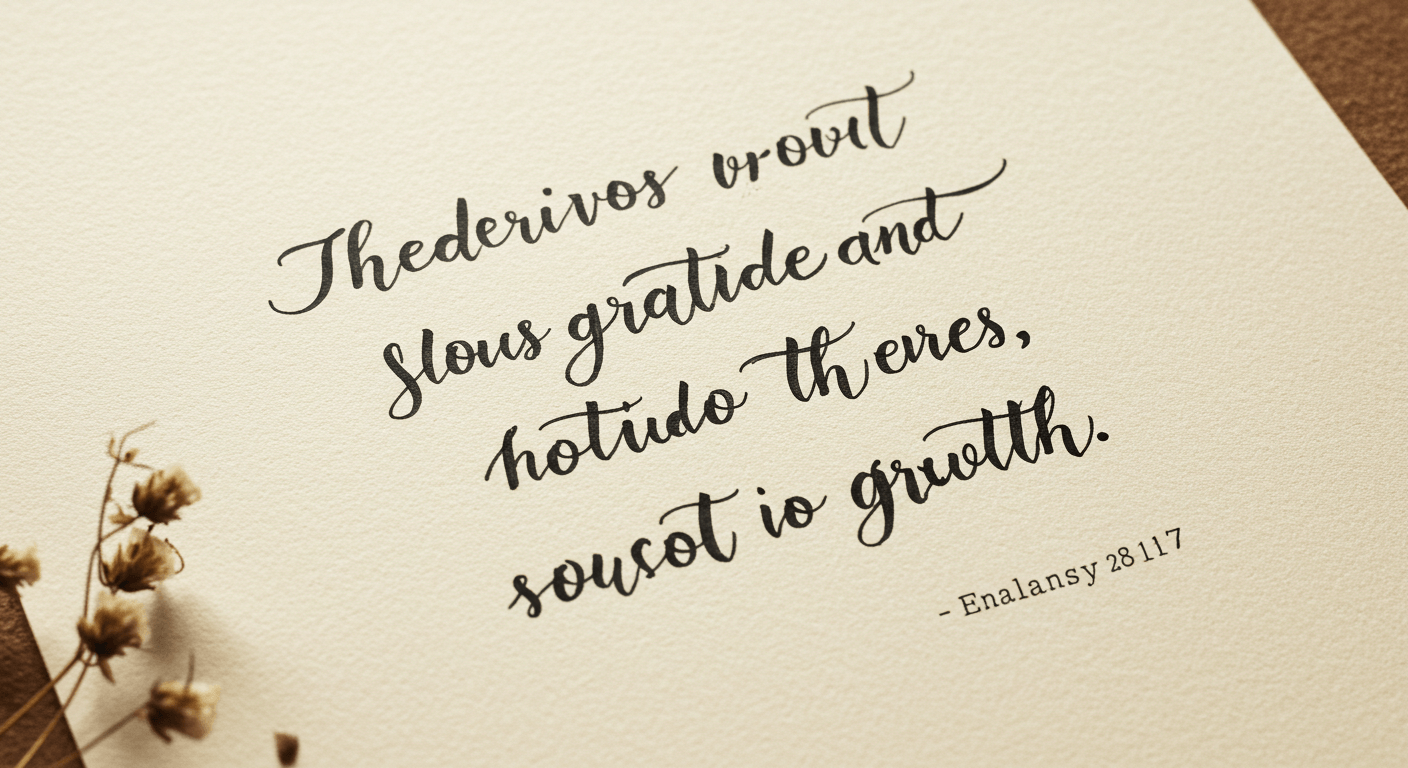 Thederivos vrovit
Slous gratide and
hotudo th eres,
sousot io grwtth.
- Enalansy 28 117